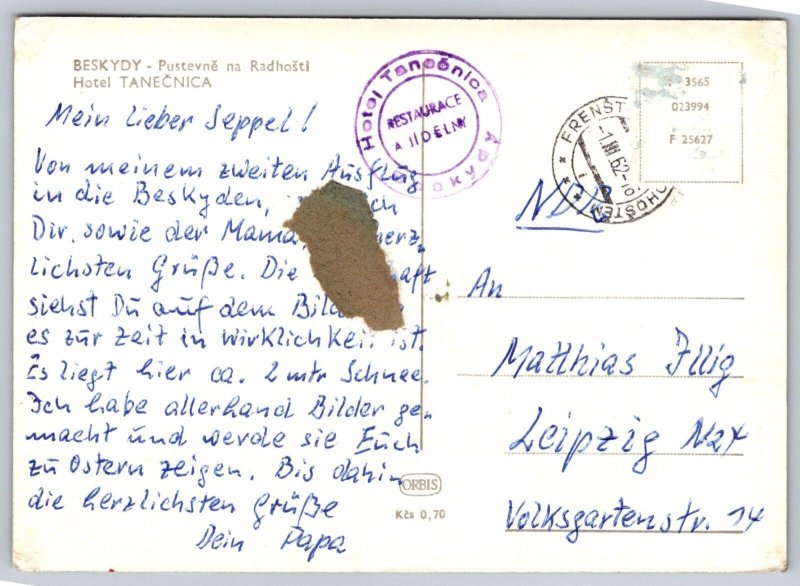 BESKYDY - Pustevně na Radhošti
Hotel TANEČNICA
Mein lieber Seppel!
Von meinem zweiten Ausflug
in die Beskyden,
Dir, sowie der Mama herz-
lichsten Grüße. Die
siehst Du auf dem
es zur Zeit in Wirklichkeit ist.
Es liegt hier ca. 2 mtr Schnee.
Ich habe allerhand Bilder ge-
macht und werde sie Euch
zu Ostern zeigen. Bis dahin
die herzlichsten Grüße
Dein Papa
Hotel Tanečnica
RESTAURACE
A JÍDELNY
3565
023994
F 25627
FRENŠT
An
Matthias Illig
Leipzig N24
Volksgartenstr. 14
ORBIS
Kčs 0,70